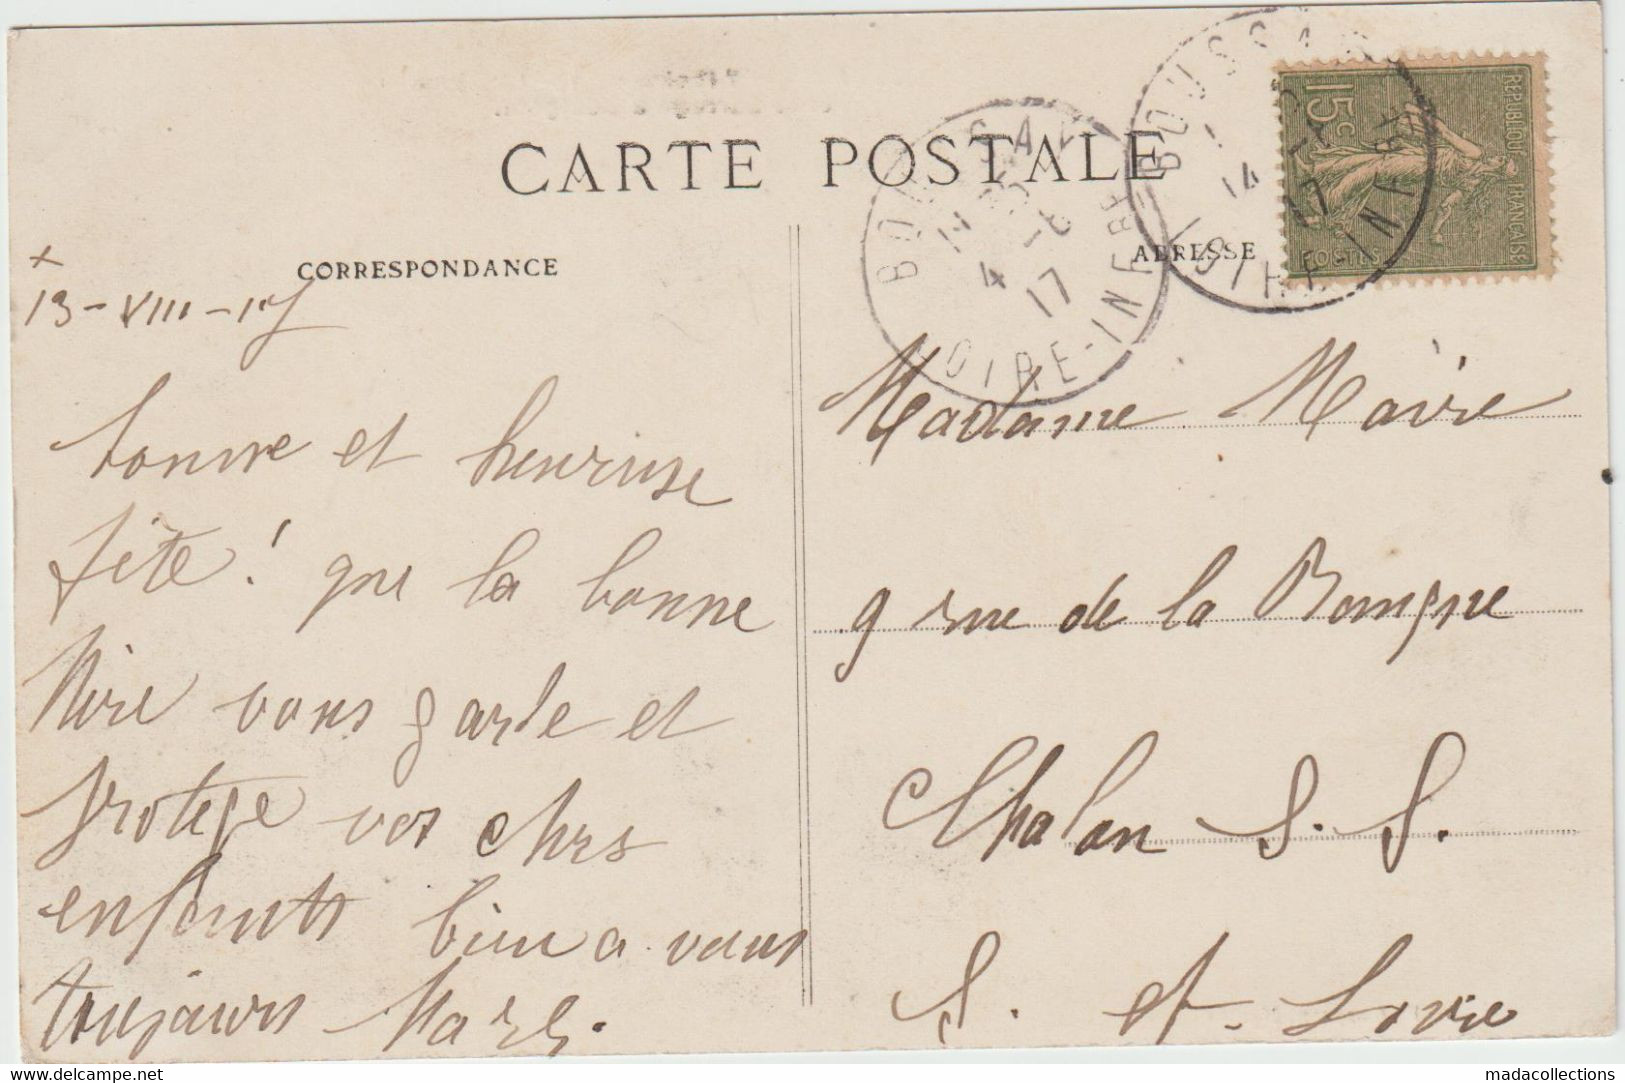 CARTE POSTALE
CORRESPONDANCE
ADRESSE
BOUSSAY
14 - 8
17
LOIRE-INFRE
BOUSSAY
14 - 8
17
LOIRE-INFRE
REPUBLIQUE FRANÇAISE
15c
POSTES
x
13-VIII-17
bonne et heureuse
fête! que la bonne
Mère vous garde et
protège vos chers
enfants bien a vous
toujours
Madame Maire
9 rue de la Banque
Chalon S. S.
S. et Loire
www.delcampe.net
madacollections